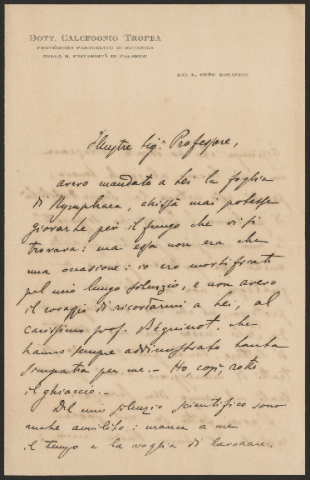 DOTT. CALCEDONIO TROPEA
PROFESSORE PAREGGIATO DI BOTANICA
NELLA R. UNIVERSITÀ DI PALERMO
DAL R. ORTO BOTANICO
Illustre Sig. Professore,
avevo mandato a Lei la foglia
di Nymphaea, chissà mai potesse
giovarle per il fungo che vi si
trovava: ma essa non era che
una occasione: io ero mortificato
pel mio lungo silenzio, e non avevo
il coraggio di ricordarmi a Lei, al
carissimo prof. Béguinot. che
hanno sempre addimostrato tanta
simpatia per me. - Ho, così, rotto
il ghiaccio. -
Del mio silenzio scientifico sono
anche avvilito: manca a me
il tempo e la voglia di lavorare.